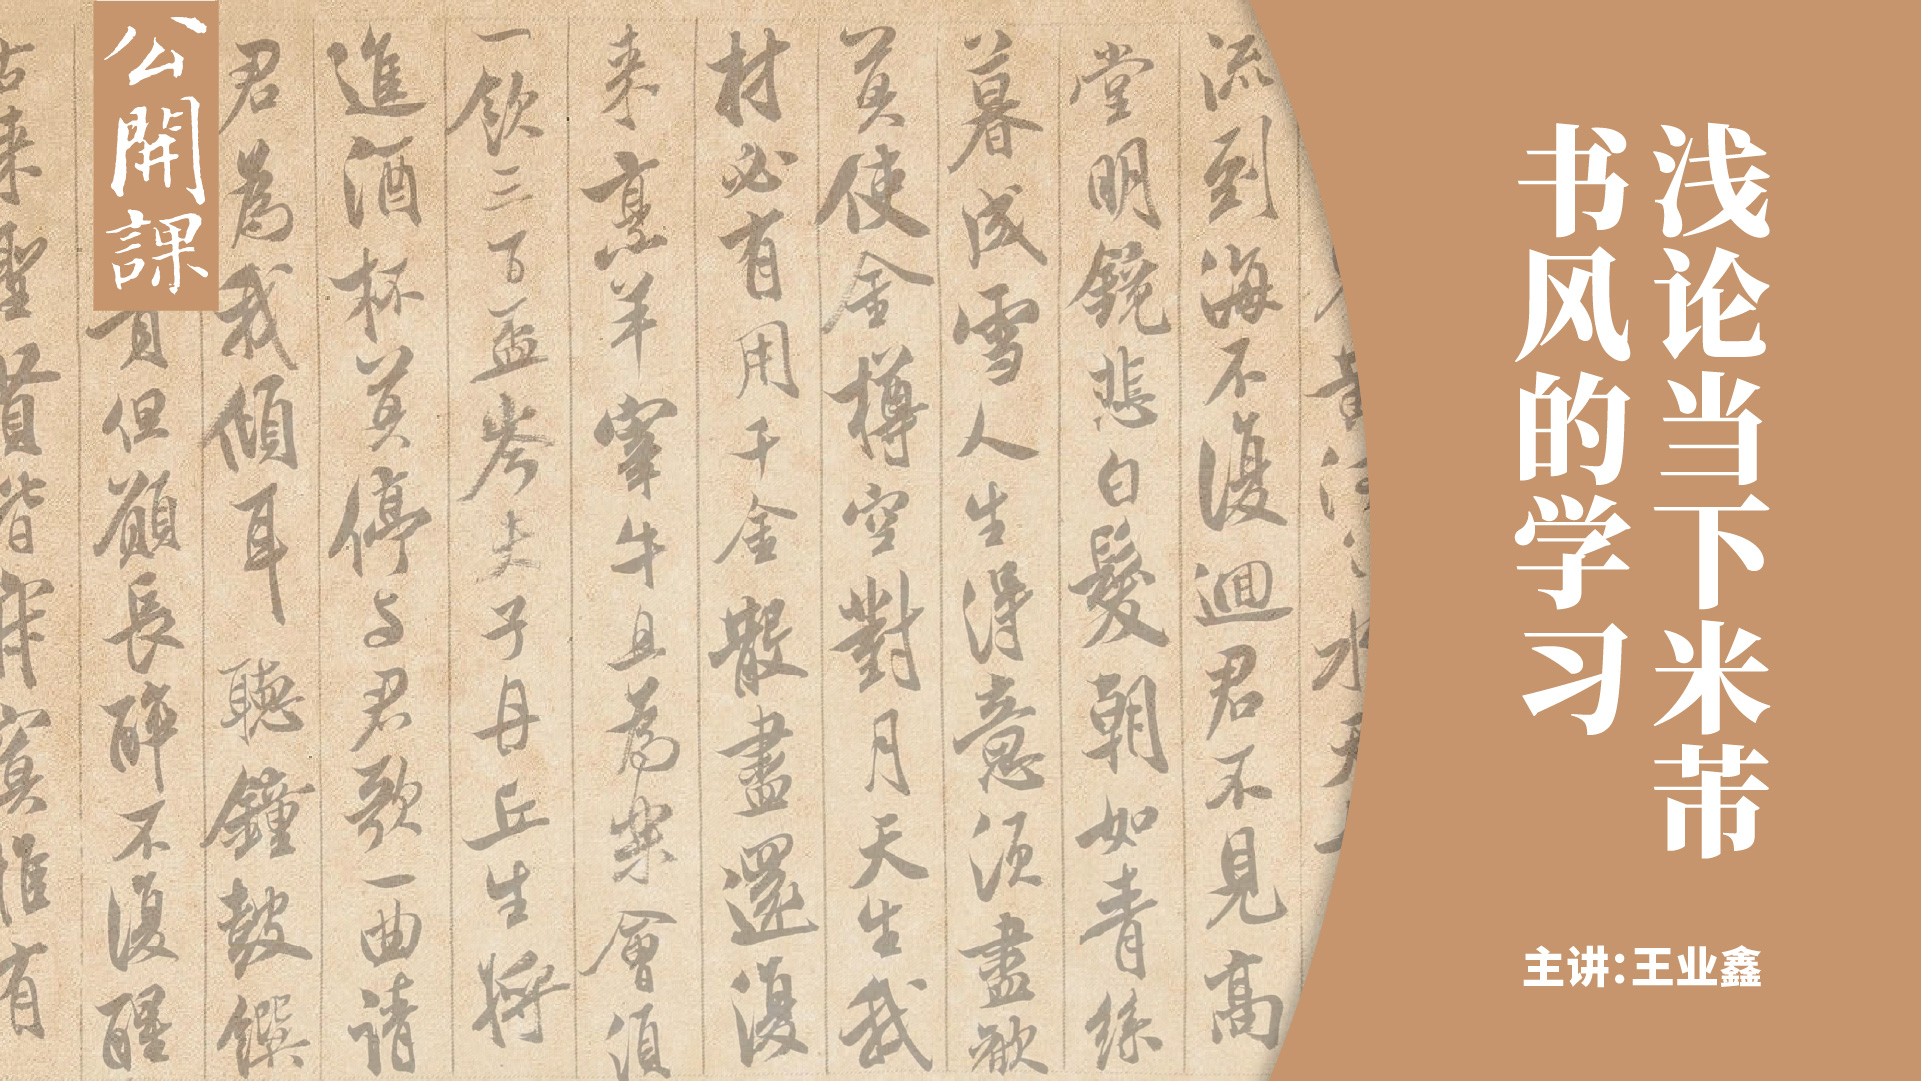 浅论当下米芾
书风的学习
主讲:王业鑫
公開課
黄河之水天
流到海不復迴君不見高
堂明鏡悲白髮朝如青絲
暮成雪人生得意須盡歡
莫使金樽空對月天生我
材必有用千金散盡還復
来烹羊宰牛且為樂會須
一飲三百盃岑夫子丹丘生將
進酒杯莫停与君歌一曲请
君為我傾耳聽鐘鼓饌
貴但願長醉不復醒
古来聖賢皆寂寞惟有